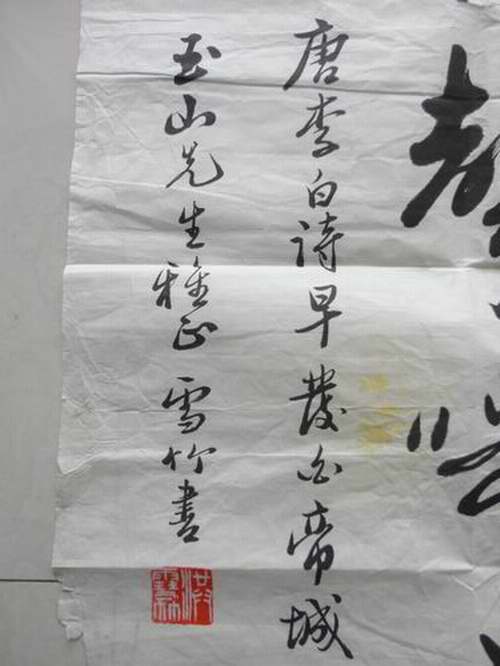 唐李白詩早發白帝城
玉山先生雅正 雪竹書